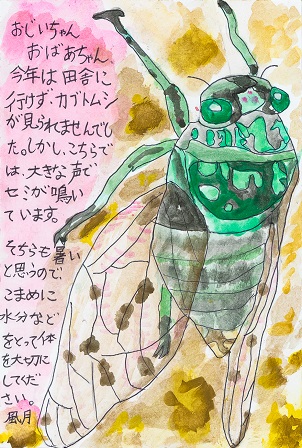 おじいちゃん
おばあちゃん、
今年は田舎に
行けず、カブトムシ
が見られませんでし
た。しかし、こちらで
は、大きな声で
セミが鳴い
ています。
そちらも暑い
と思うので、
こまめに
水分など
をとって体
を大切に
してくだ
さい。
風月